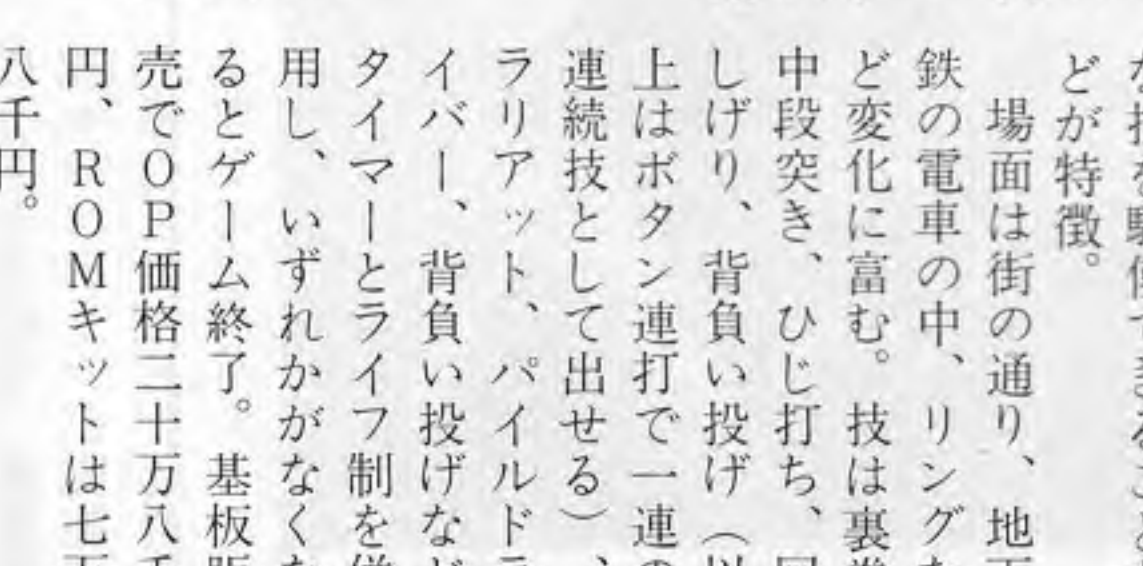 どが特徴。
場面は街の通り、地下
鉄の電車の中、リングな
ど変化に富む。技は裏拳
中段突き、ひじ打ち、回
しげり、背負い投げ（以
上はボタン連打で一連の
連続技として出せる）、
ラリアット、パイルドラ
イバー、背負い投げなど
タイマーとライフ制を併
用し、いずれかがなくな
るとゲーム終了。基板販
売でOP価格二十万八千
円、ROMキットは七万
八千円。